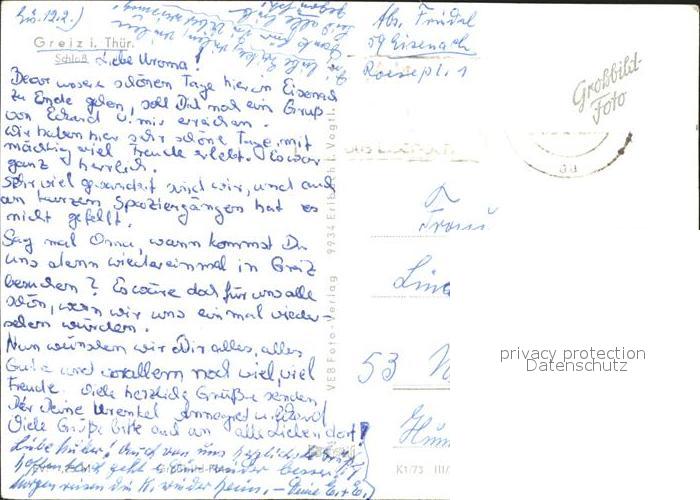 Eis. 12.2.
Greiz i. Thür.
Schloß
Liebe Uroma!
Bevor unsere schönen Tage hier in Eisenach
zu Ende gehen, soll Dich noch ein Gruß
von Eckard u. mir erreichen.
Wir haben hier sehr schöne Tage mit
mächtig viel Freude erlebt. Es war
ganz herrlich.
Sehr viel gewandert sind wir, und auch
an kurzen Spaziergängen hat es
nicht gefehlt.
Sag mal Oma, wann kommst Du
uns denn wiedereinmal in Greiz
besuchen? Es wäre doch für uns alle
schön, wenn wir uns einmal wieder-
sehen würden.
Nun wünschen wir Dir alles, alles
Gute und vorallem noch viel, viel
Freude. Viele herzliche Grüße senden
Dir Deine Urenkel Annegret u. Eckard
Viele Grüße bitte auch an alle Lieben dort!
Liebe Mutter! Auch von uns herzliche Grüße,
hoffentlich geht es Dir wieder besser.
Morgen reisen die K. wieder heim. – Deine
VEB Foto-Verlag 9934 Erlbach i. Vogtl.
Abs. Friedel
59 Eisenach
Roesepl. 1
Großbild-
Foto
Frau
53 W
Hum
K1/73 III/
privacy protection
Datenschutz